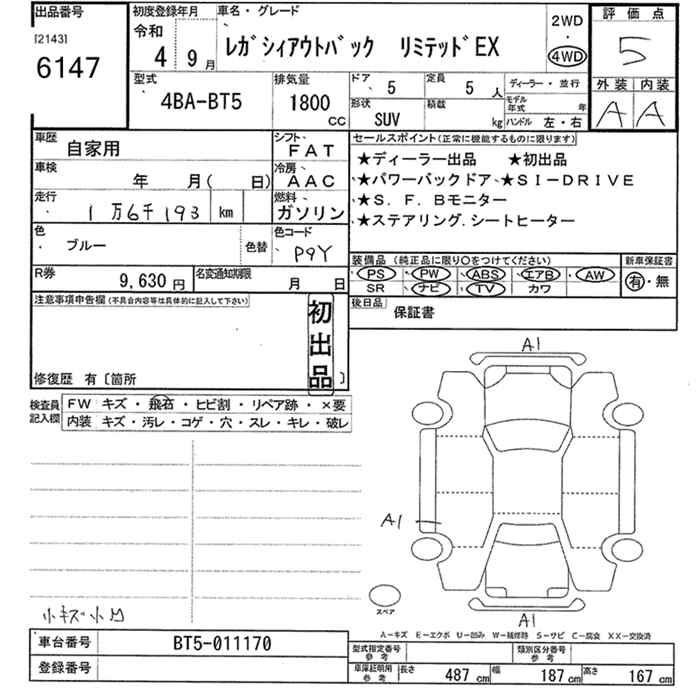 出品番号 初度登録年月 車名・グレード
[2143] 6147 令和 4 9月 レガシィアウトバック リミテッドEX 2WD・4WD
評価点 5
外装 内装
A A
型式 4BA-BT5 排気量 1800 cc ドア 5 定員 5人 ディーラー・並行
形状 SUV 積載 kg モデル年式 年 ハンドル 左・右
車歴 自家用 シフト FAT
車検 年 月( 日) 冷房 AAC
走行 1万6千193 km 燃料 ガソリン
色 ブルー 色替 色コード P9Y
R券 9,630円 名変通知期限 月 日
セールスポイント(正常に機能するものに限ります)
★ディーラー出品 ★初出品
★パワーバックドア ★SI-DRIVE
★S.F.Bモニター
★ステアリング.シートヒーター
装備品 (純正品に限り○をつけてください) 新車保証書
PS PW ABS エアB AW 有・無
SR ナビ TV カワ
後日品 保証書
注意事項申告欄(不具合内容等は具体的に記入して下さい)
初出品
修復歴 有〔箇所 〕
検査員記入欄 FW キズ・飛石・ヒビ割・リペア跡・×要
内装 キズ・汚レ・コゲ・穴・スレ・キレ・破レ
A1
A1
A1
スペア
小キズ小凹
A-キズ E-エクボ U-凹み W-補修跡 S-サビ C-腐食 XX-交換済
車台番号 BT5-011170
登録番号
型式指定番号 参考 類別区分番号 参考
車庫証明用 参考 長さ 487 cm 幅 187 cm 高さ 167 cm